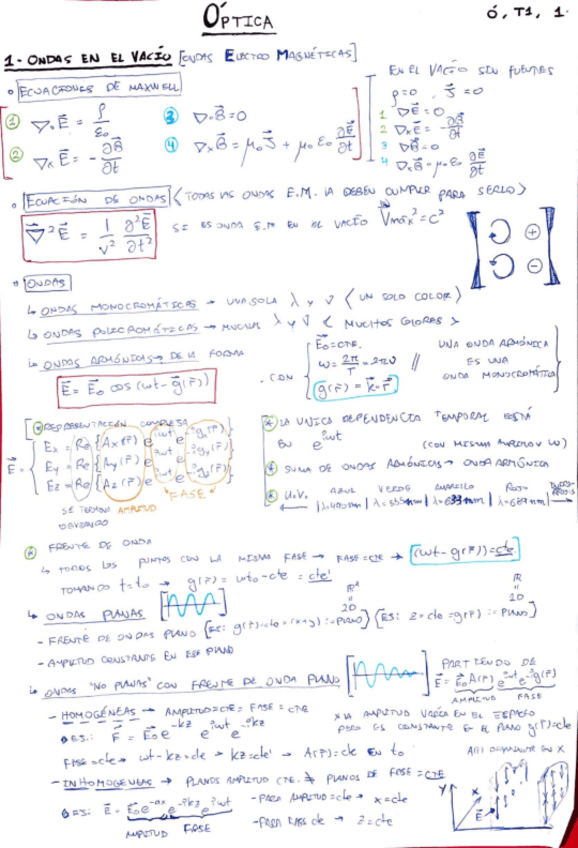 ÓPTICA
Ó, T1, 1.
1.- ONDAS EN EL VACÍO [ONDAS ELECTRO MAGNÉTICAS]
ECUACIONES DE MAXWELL
① ∇·E⃗ = ρ/ε₀
③ ∇·B⃗ = 0
② ∇×E⃗ = -∂B⃗/∂t
④ ∇×B⃗ = μ₀J⃗ + μ₀ε₀ ∂E⃗/∂t
EN EL VACÍO SIN FUENTES
ρ=0 J⃗=0
1 ∇E⃗ = 0
2 ∇×E⃗ = -∂B⃗/∂t
3 ∇B⃗ = 0
4 ∇×B⃗ = μ₀ε₀ ∂E⃗/∂t
ECUACIÓN DE ONDAS <TODAS LAS ONDAS E.M. LA DEBEN CUMPLIR PARA SERLO>
∇⃗²E⃗ = 1/v² ∂²E⃗/∂t²
SI ES ONDA E.M EN EL VACÍO
ONDAS
↳ ONDAS MONOCROMÁTICAS → UNA SOLA λ y ν <UN SOLO COLOR>
↳ ONDAS POLICROMÁTICAS → MUCHAS λ y ν <MUCHOS COLORES>
↳ ONDAS ARMÓNICAS → DE LA FORMA
E⃗ = E⃗₀ cos(ωt - g(r⃗))
CON
E₀ = CTE.
ω = 2π/T = 2πν
g(r⃗) = k⃗·r⃗
// UNA ONDA ARMÓNICA
ES UNA
ONDA MONOCROMÁTICA
REPRESENTACIÓN COMPLEJA
E⃗ =
Ex = Re {Ax(r⃗) e^iωt e^-igx(r⃗)}
Ey = Re {Ay(r⃗) e^iωt e^-igy(r⃗)}
Ez = Re {Az(r⃗) e^iωt e^-igz(r⃗)}
AMPLITUD
"FASE"
LA UNICA DEPENDENCIA TEMPORAL ESTÁ
EN e^iωt
SUMA DE ONDAS ARMÓNICAS → ONDA ARMÓNICA
U.V. AZUL VERDE AMARILLO ROJO
FRENTE DE ONDA
↳ TODOS LOS PUNTOS CON LA MISMA FASE → FASE=CTE → (ωt - g(r⃗)) = cte
TOMANDO t=t₀ → g(r⃗) = ωt₀ - cte = cte'
↳ ONDAS PLANAS
- FRENTE DE ONDAS PLANO
- AMPLITUD CONSTANTE EN ESE PLANO
↳ ONDAS "NO PLANAS" CON FRENTE DE ONDA PLANO
PARTIENDO DE
E⃗ = E⃗₀ A(r⃗) e^iωt e^-ig(r⃗)
AMPLITUD FASE
- HOMOGÉNEAS → AMPLITUD=CTE = FASE = CTE
EJ.: E⃗ = E⃗₀ e^-kz e^iωt e^-ikz
* LA AMPLITUD VARÍA EN EL ESPACIO
PERO ES CONSTANTE EN EL PLANO g(r⃗)=cte
FASE=cte → ωt - kz = cte → kz = cte' → A(r⃗) = cte EN t₀
- INHOMOGENEAS → PLANOS AMPLITUD CTE. ≠ PLANOS DE FASE = CTE
EJ: E⃗ = E⃗₀ e^-ax e^-ikz e^iωt
AMPLITUD FASE
- PARA AMPLITUD = cte → x = cte
- PARA FASE cte → z = cte
y
x
E⃗
z